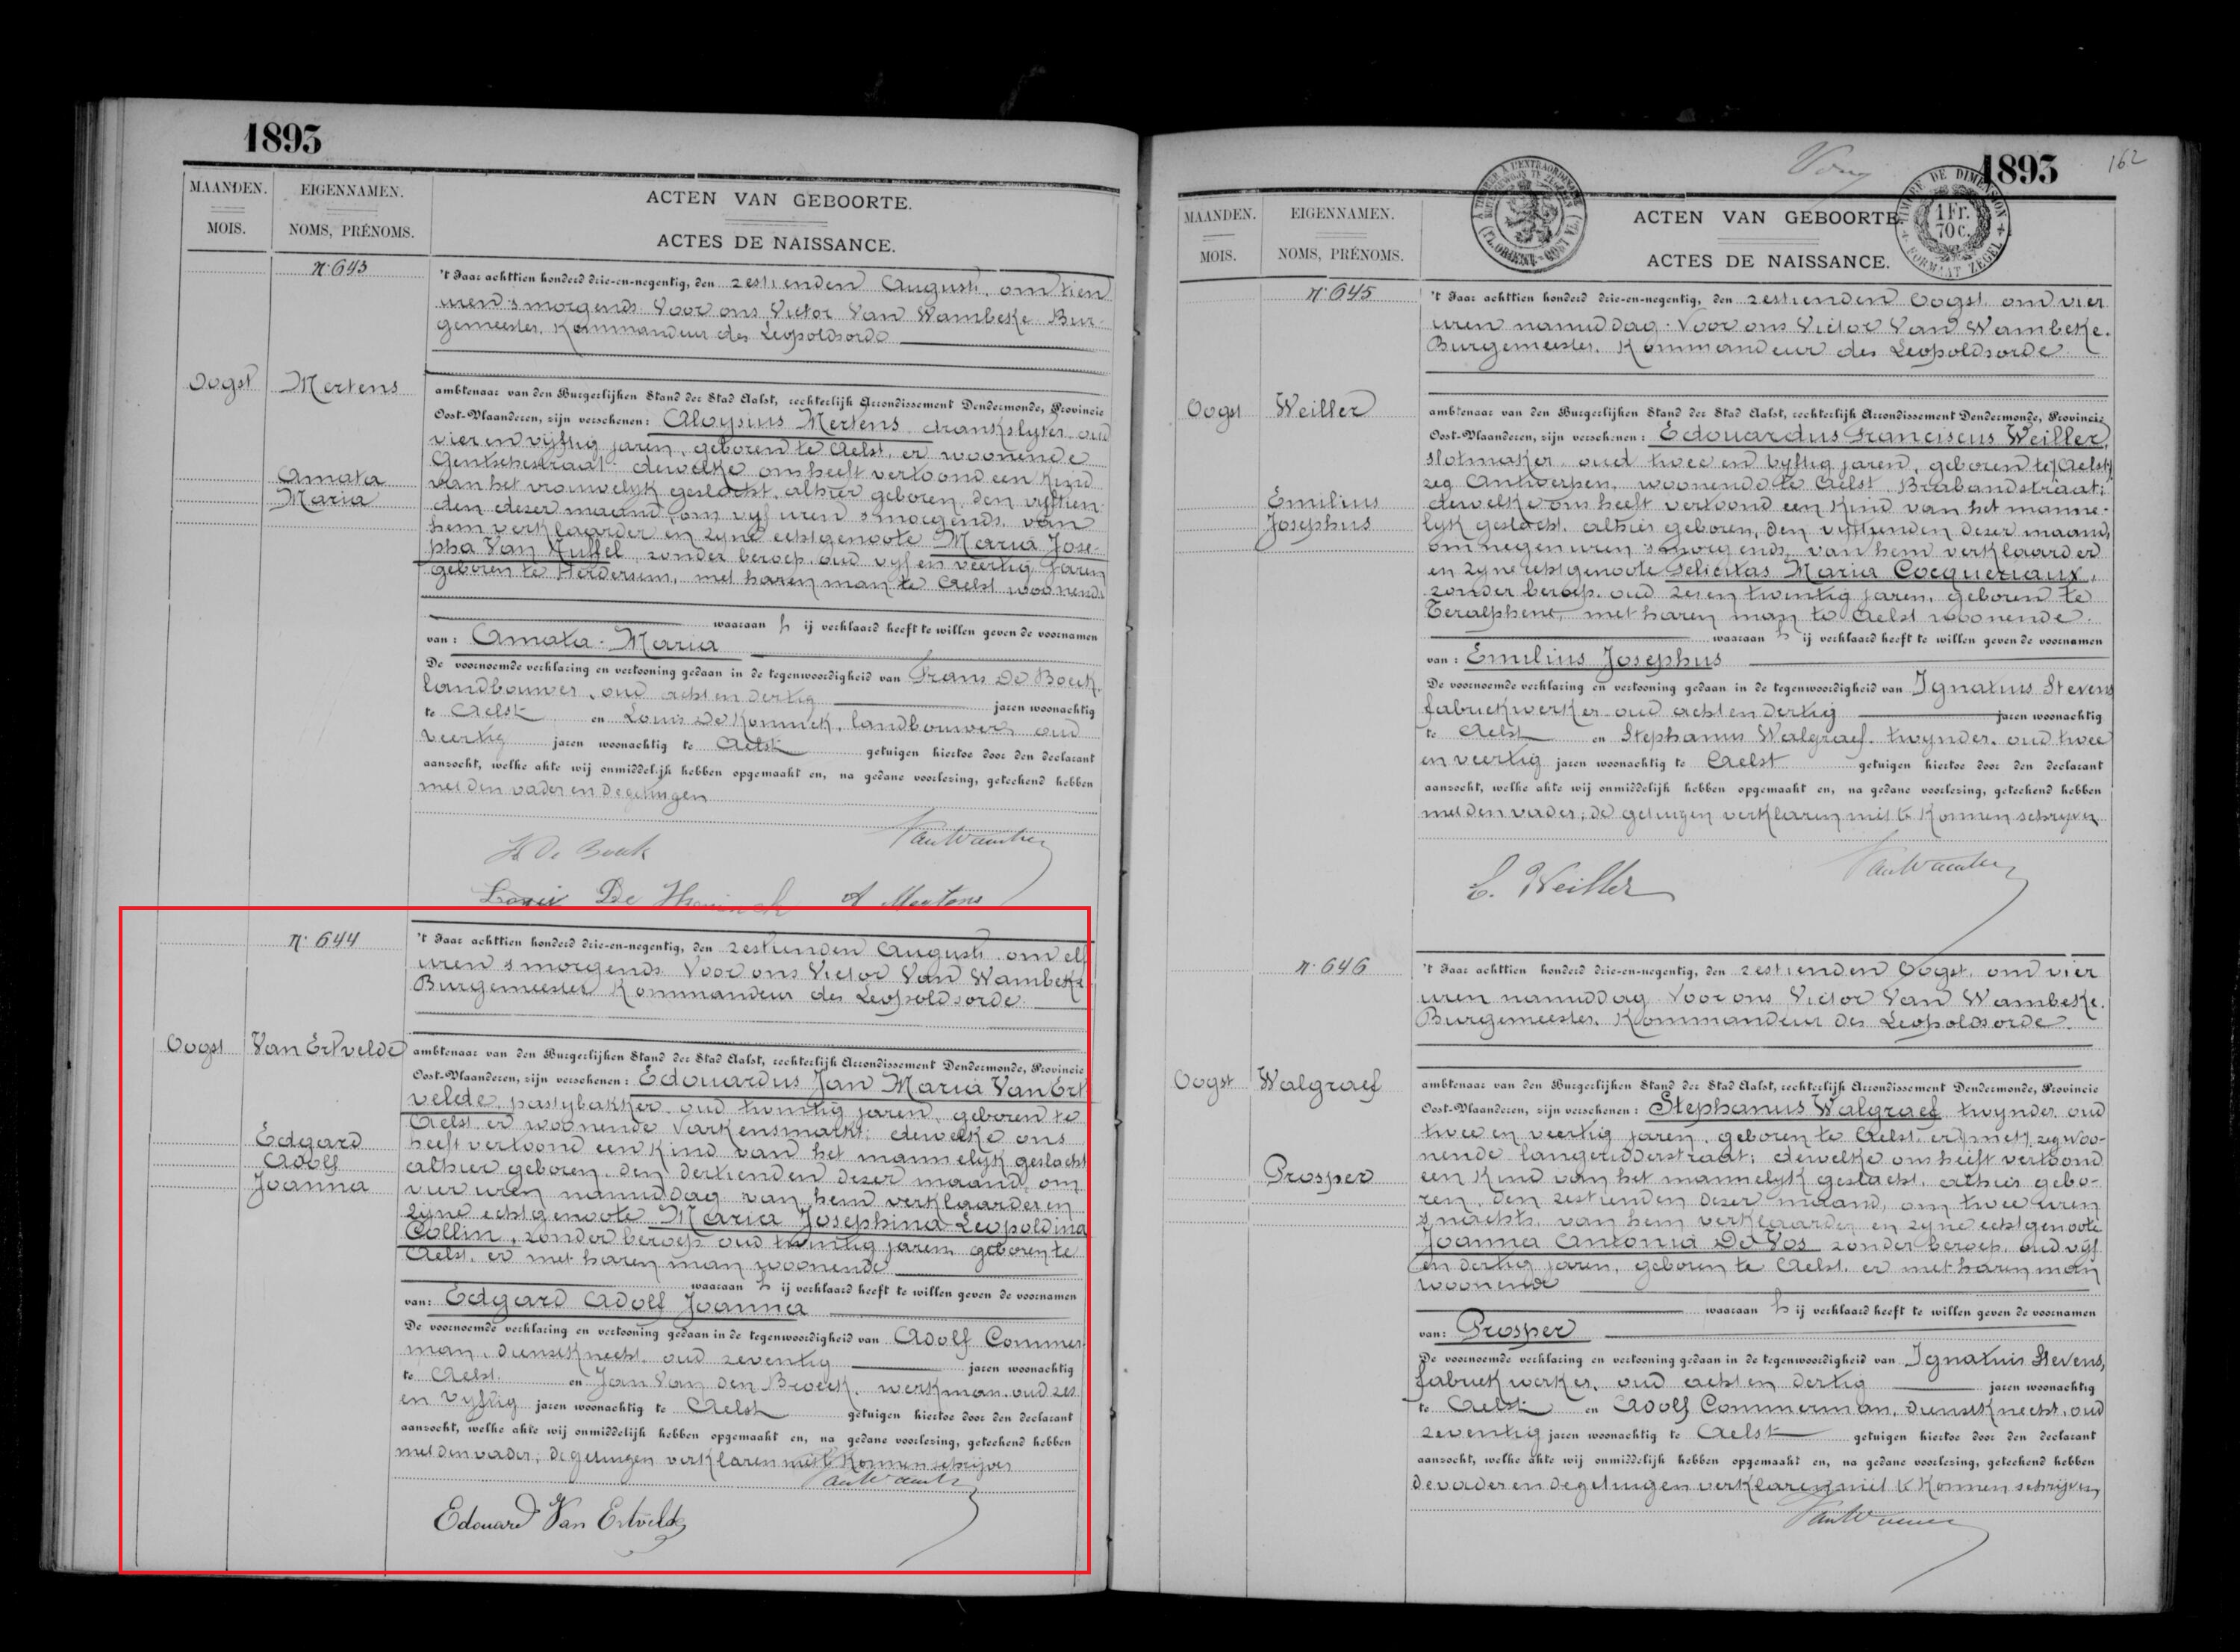 1893
MAANDEN.
MOIS.
EIGENNAMEN.
NOMS, PRÉNOMS.
ACTEN VAN GEBOORTE.
ACTES DE NAISSANCE.
N. 643
Oogst
Mertens
Amata
Maria
't Jaar achttien honderd drie-en-negentig, den zestienden Augusti, om tien
uren smorgends. Voor ons Victor Van Wambeke Bur-
gemeester, Kommandeur der Leopoldsorde
ambtenaar van den Burgerlijken Stand der Stad Aalst, rechterlijk Arrondissement Dendermonde, Provincie
Oost-Vlaanderen, zijn verschenen: Aloysius Mertens drankslyter oud
vier en vijftig jaren, geboren te Aelst, er woonende
Gentschestraat: dewelke ons heeft vertoond een Kind
van het vrouwelyk geslacht, alhier geboren, den vyftien-
den dezer maand, om vyf uren smorgends, van
hem verklaarder en zyne echtgenoote Maria Jose-
pha Van Nuffel zonder beroep, oud vyf en veertig jaren
geboren te Herdersem, met haren man te Aelst woonende
waaraan h ij verklaard heeft te willen geven de voornamen
van: Amata-Maria
De voornoemde verklaring en vertooning gedaan in de tegenwoordigheid van Frans De Boeck.
landbouwer, oud acht en dertig jaren woonachtig
te Aelst en Louis De Koninck, landbouwer, oud
veertig jaren woonachtig te Aelst getuigen hiertoe door den declarant
aanzocht, welke akte wij onmiddelijk hebben opgemaakt en, na gedane voorlezing, geteekend hebben
met den vader en de getuigen
De Boeck
VanWambeke
Louis De A Mertens
N. 644
Oogst
Van Ertvelde
Edgard
Adolf
Joanna
't Jaar achttien honderd drie-en-negentig, den zestienden Augusti om elf
uren smorgends. Voor ons Victor Van Wambeke
Burgemeester Kommandeur der Leopoldsorde.
ambtenaar van den Burgerlijken Stand der Stad Aalst, rechterlijk Arrondissement Dendermonde, Provincie
Oost-Vlaanderen, zijn verschenen: Edouardus Jan Maria Van Ert-
velede, pastybakker oud twintig jaren, geboren te
Aelst er woonende Varkensmarkt: dewelke ons
heeft vertoond een Kind van het mannelyk geslacht
alhier geboren, den dertienden dezer maand, om
vier uren namiddag van hem verklaarder en
zyne echtgenoote Maria Josephina Leopoldina
Collin, zonder beroep oud twintig jaren geboren te
Aelst, er met haren man woonende
waaraan h ij verklaard heeft te willen geven de voornamen
van: Edgard Adolf Joanna
De voornoemde verklaring en vertooning gedaan in de tegenwoordigheid van Adolf Commer-
man, dienstknecht, oud zeventig jaren woonachtig
te Aelst. en Jan Van den Broeck, werkman, oud zes
en vyftig jaren woonachtig te Aelst getuigen hiertoe door den declarant
aanzocht, welke akte wij onmiddelijk hebben opgemaakt en, na gedane voorlezing, geteekend hebben
met den vader; de getuigen verklaren niet te Konnen schryven
VanWambeke
Edouard Van Ertvelde
Vong
1893
162
A L'EXTRAORDINAIRE
(FL. ORIENT. - OOST VL.)
TIMBRE DE DIMENSION
1 Fr.
70 C.
FORMAAT ZEGEL
MAANDEN.
MOIS.
EIGENNAMEN.
NOMS, PRÉNOMS.
ACTEN VAN GEBOORTE.
ACTES DE NAISSANCE.
N. 645
Oogst
Weiller
Emilius
Josephus
't Jaar achttien honderd drie-en-negentig, den zestienden Oogst, om vier
uren namiddag. Voor ons Victor Van Wambeke.
Burgemeester, Kommandeur der Leopoldsorde
ambtenaar van den Burgerlijken Stand der Stad Aalst, rechterlijk Arrondissement Dendermonde, Provincie
Oost-Vlaanderen, zijn verschenen: Edouardus Franciscus Weiller,
slotmaker, oud twee en vyftig jaren, geboren te (Aelst)
zeg Antwerpen, woonende te Aelst, Brabandstraat;
dewelke ons heeft vertoond een Kind van het manne-
lyk geslacht, alhier geboren, den vyftienden dezer maand,
om negen uren smorgends, van hem verklaarder
en zyne echtgenoote Felicitas Maria Cocqueriaux,
zonder beroep, oud zes en twintig jaren, geboren te
Teralphene, met haren man te Aelst woonende.
waaraan h ij verklaard heeft te willen geven de voornamen
van: Emilius Josephus
De voornoemde verklaring en vertooning gedaan in de tegenwoordigheid van Ignatius Stevens
fabriekwerker oud acht en dertig jaren woonachtig
te Aelst en Stephanus Walgraef, twynder, oud twee
en veertig jaren woonachtig te Aelst getuigen hiertoe door den declarant
aanzocht, welke akte wij onmiddelijk hebben opgemaakt en, na gedane voorlezing, geteekend hebben
met den vader; de getuigen verklaren niet te Konnen schryven
VanWambeke
E. Weiller
N. 646
Oogst
Walgraef
Prosper
't Jaar achttien honderd drie-en-negentig, den zestienden Oogst, om vier
uren namiddag Voor ons Victor Van Wambeke.
Burgemeester, Kommandeur der Leopoldsorde.
ambtenaar van den Burgerlijken Stand der Stad Aalst, rechterlijk Arrondissement Dendermonde, Provincie
Oost-Vlaanderen, zijn verschenen: Stephanus Walgraef, twynder, oud
twee en veertig jaren, geboren te Aelst, er (met) zeg woo-
nende langeridderstraat; dewelke ons heeft vertoond
een Kind van het mannelyk geslacht, alhier gebo-
ren, den zestienden dezer maand, om twee uren
snachts, van hem verklaarder en zyne echtgenoote
Joanna Antonia De Vos zonder beroep, oud vyf
en dertig jaren, geboren te Aelst, er met haren man
woonende
waaraan h ij verklaard heeft te willen geven de voornamen
van: Prosper
De voornoemde verklaring en vertooning gedaan in de tegenwoordigheid van Ignatius Stevens,
fabriekwerker, oud acht en dertig jaren woonachtig
te Aelst en Adolf Commerman, dienstknecht, oud
zeventig jaren woonachtig te Aelst getuigen hiertoe door den declarant
aanzocht, welke akte wij onmiddelijk hebben opgemaakt en, na gedane voorlezing, geteekend hebben
de vader en de getuigen verklaren niet te Konnen schryven
VanWambeke